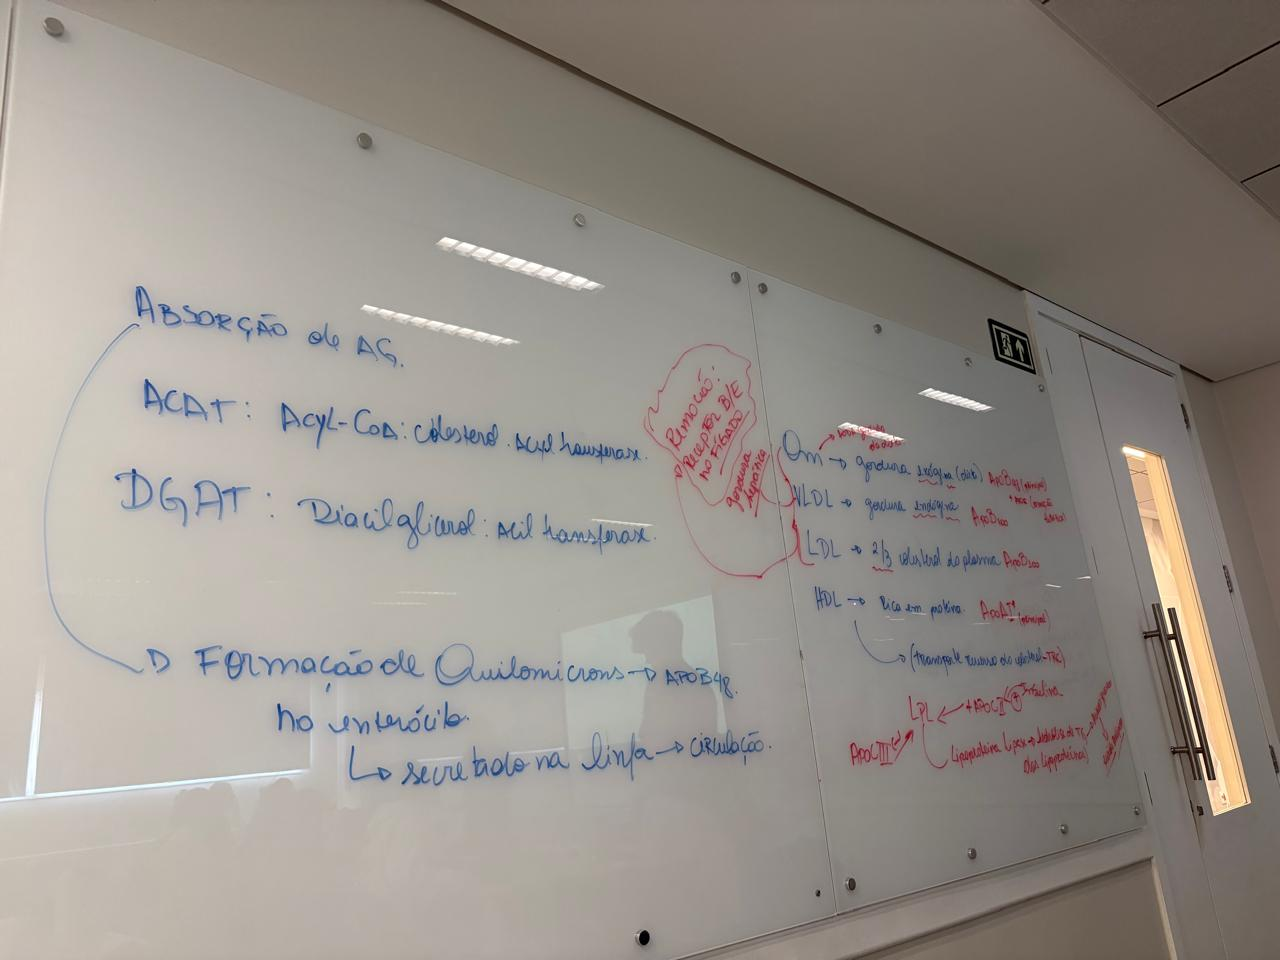 ABSORÇÃO de AG.
ACAT: Acyl-CoA: colesterol. Acyl transferase.
DGAT: Diacilglicerol: acil transferase.
→ Formação de Quilomicrons → APOB48.
no enterócito.
↳ secretado na linfa → circulação.
Remoção:
Receptor B/E
no Fígado
gordura
hepática
Qm → gordura exógena (dieta) ApoB48 (principal)
VLDL → gordura endógena ApoB100
LDL → 2/3 colesterol do plasma ApoB100
HDL → Rica em proteína. ApoAI (principal)
→ (transporte reverso do colesterol-TRC)
LPL ← + APOCII ← ⊕ Insulina
APOCIII
Lipoproteína Lipase → hidrólise de TG
(das lipoproteínas)